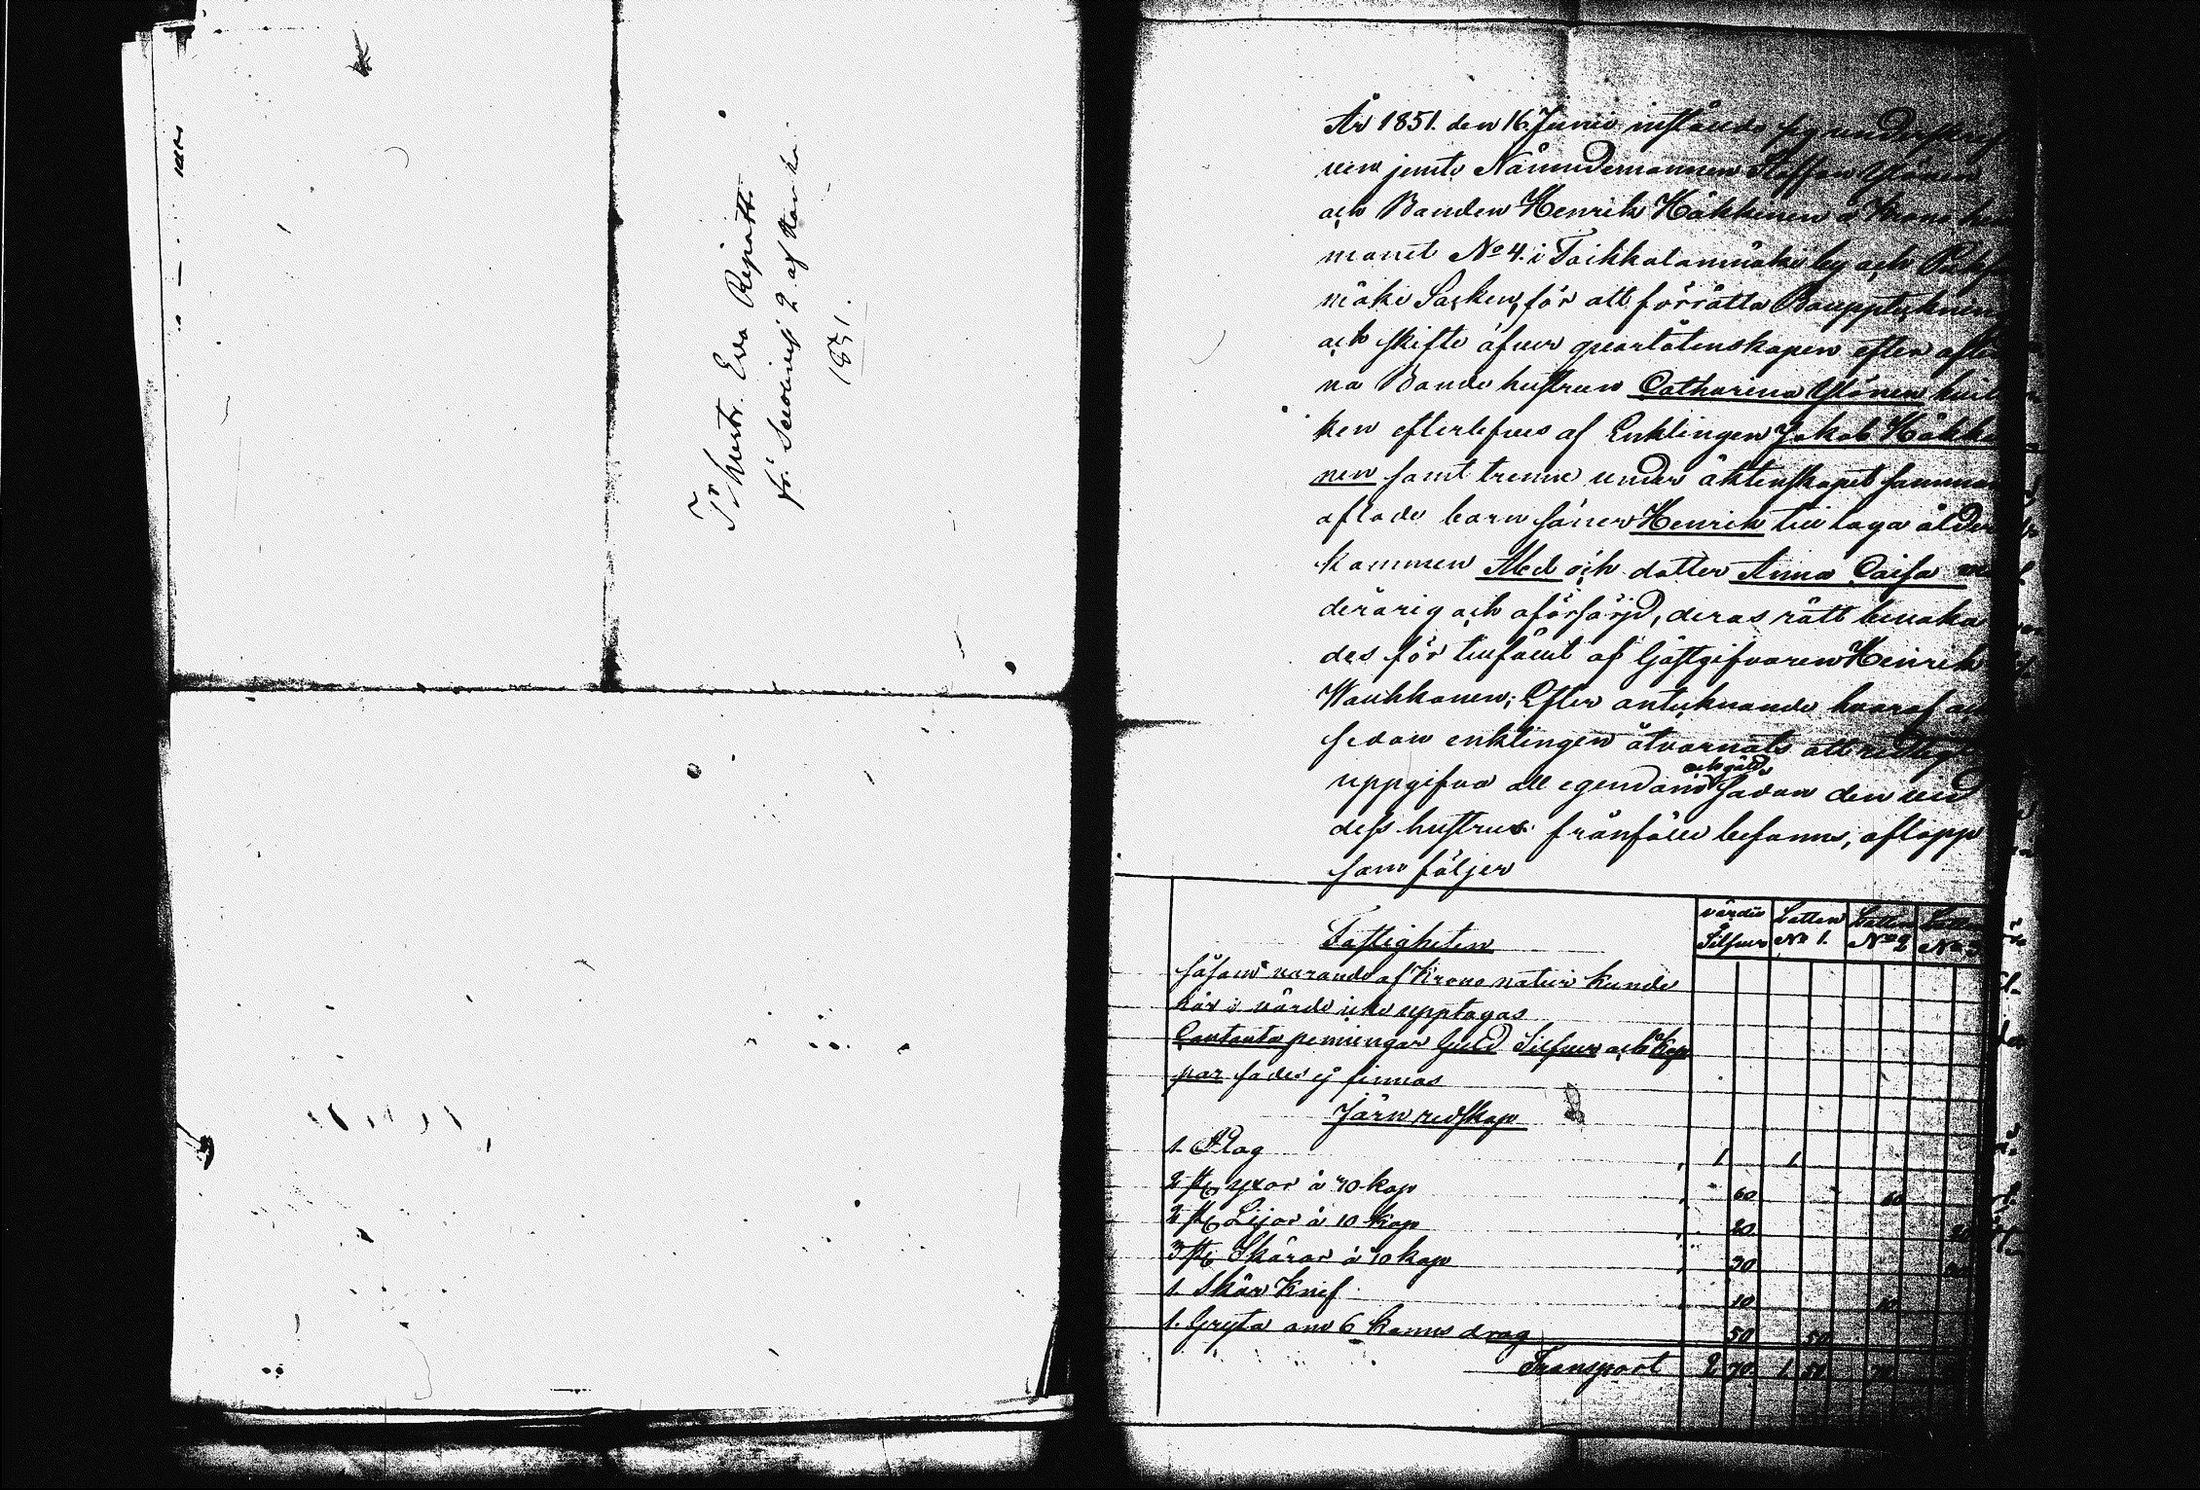 Hustr. Eva Repatti
1851.
År 1851. den 16 Junii instälde sig underskrif
ven jemte Nämndemannen Staffan Ylönen
och Bonden Henrik Häkkinen å Krono hem
manet No 4. i Toikkalanmäki by och
mäki Socken, för att förrätta Bouppteckning
och skifte öfver qvarlåtenskapen efter afled
na Bonde hustrun Catharina Ylönen hvil
ken efterlefves af Enklingen Jakob Häkki
nen samt trenne under äktenskapet samman
aflade barn söner Henrik till laga ålder
kommen Abel och dotter Anna Caisa min
derårig och oförsörjd, deras rätt bevaka
des för tillfället af Gästgifvaren Henrik
Wauhkonen; Efter antecknande hvaraf och
sedan enklingen åtvarnats att redligen
uppgifva all egendom och gäld sådan den vid
dess hustrus frånfälle befanns, aflopp
som följer
Fastigheten
värdie Silfver
Lotten No 1.
Lotten No 2
Lotten No 3
såsom varande af Krono natur kunde
här i värde icke upptagas
Contanta penningar Guld Silfver och Kop
par sades ej finnas
Järn redskap
1. Plog 1 1
2 st yxor à 30 kop 60 60
2 st Lijor à 10 kop 20 20
3 st Skäror à 10 kop 30 30
1. Skär Knif 10 10
1. Gryta om 6 kanns drag 50 50
Transport 2 70 1 50 70